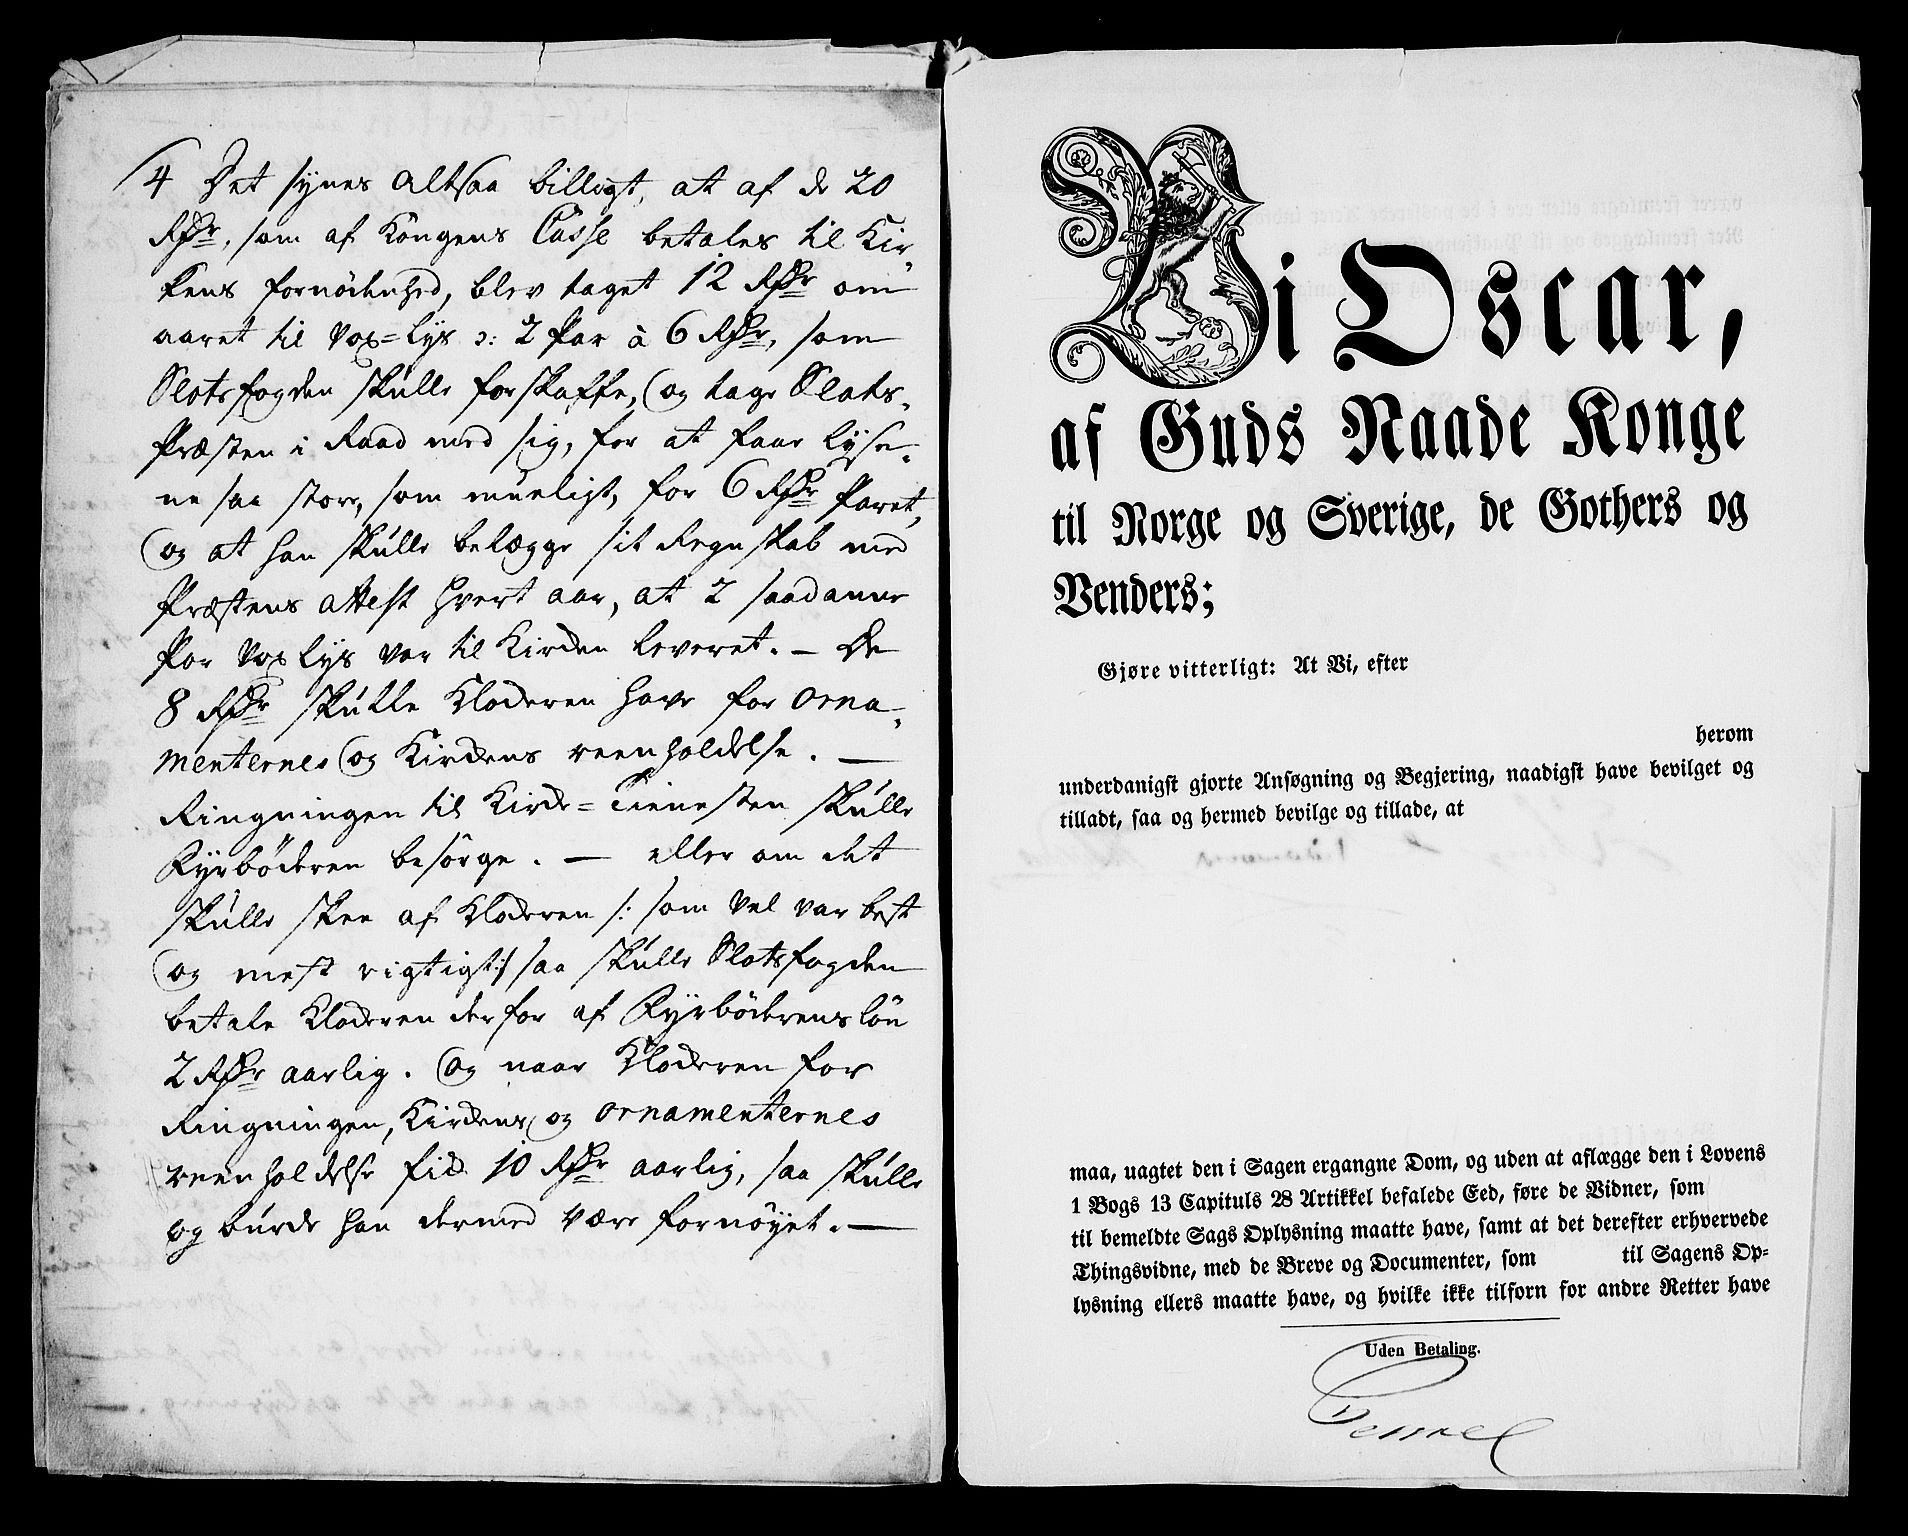 4 Det synes altsaa billigt, at af de 20
Rdr, som af Kongens Casse betales til Kir-
kens fornødenhed, blev taget 12 Rdr om
aaret til Vox=Lys ɔ: 2 Par à 6 Rdr, som
Slotsfogden skulle forskaffe, og tage Slots-
Præsten i Raad med sig, for at faae lyse-
ne saa store, som mueligt, for 6 Rdr Paret,
og at han skulle belægge sit Regnskab med
Præstens attest hvert aar, at 2 saadanne
Par Vox lys var til Kirken leveret. – De
8 Rdr skulle Klokeren have for orna-
menternes og Kirkens reenholdelse. –
Ringningen til Kirke=Tienesten skulle
Fyrbøderen besørge. – eller om det
skulle skee af Klokeren /: som vel var best
og mest rigtigt:/ saa skulle Slotsfogden
betale Klokeren derfor af Fyrbøderens løn
2 Rdr aarlig. Og naar Klokeren for
Ringningen, Kirkens og ornamenternes
reenholdelse fik 10 Rdr aarlig, saa skulle
og burde han dermed være fornøyet. –
Vi Oscar,
af Guds Naade Konge
til Norge og Sverige, de Gothers og
Venders;
Gjøre vitterligt: At Vi, efter
herom
underdanigst gjorte Ansøgning og Begjering, naadigst have bevilget og
tilladt, saa og hermed bevilge og tillade, at
maa, uagtet den i Sagen ergangne Dom, og uden at aflægge den i Lovens
1 Bogs 13 Capituls 28 Artikkel befalede Eed, føre de Vidner, som
til bemeldte Sags Oplysning maatte have, samt at det derefter erhvervede
Thingsvidne, med de Breve og Documenter, som til Sagens Op-
lysning ellers maatte have, og hvilke ikke tilforn for andre Retter have
Uden Betaling.